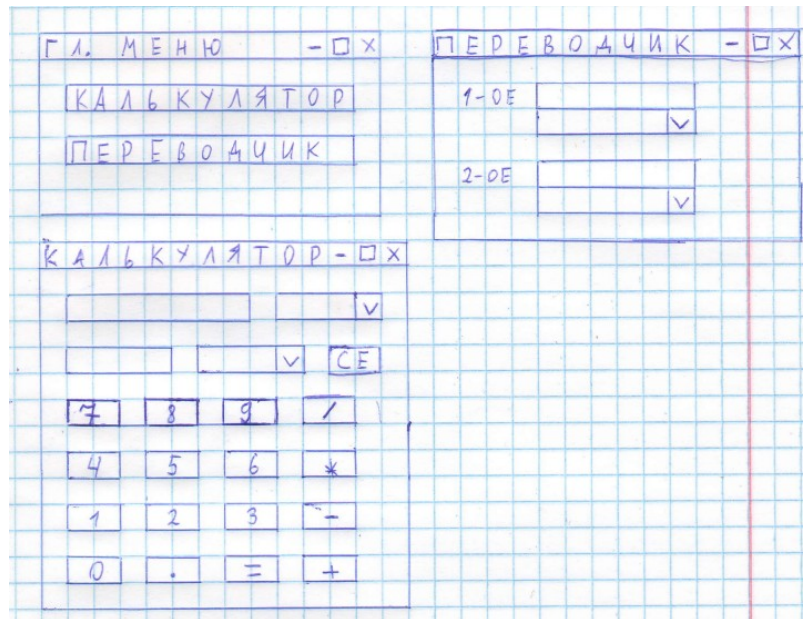 ГЛ. МЕНЮ - □ ×
КАЛЬКУЛЯТОР
ПЕРЕВОДЧИК
ПЕРЕВОДЧИК - □ ×
1-ОЕ
V
2-ОЕ
V
КАЛЬКУЛЯТОР - □ ×
V
V CE
7 8 9 /
4 5 6 *
1 2 3 -
0 . = +